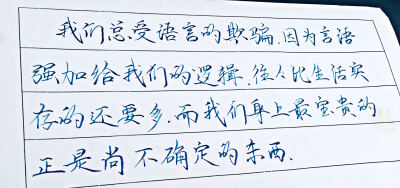 我们总受语言的欺骗,因为言语
强加给我们的逻辑,往往比生活实
存的还要多.而我们身上最宝贵的
正是尚不确定的东西.